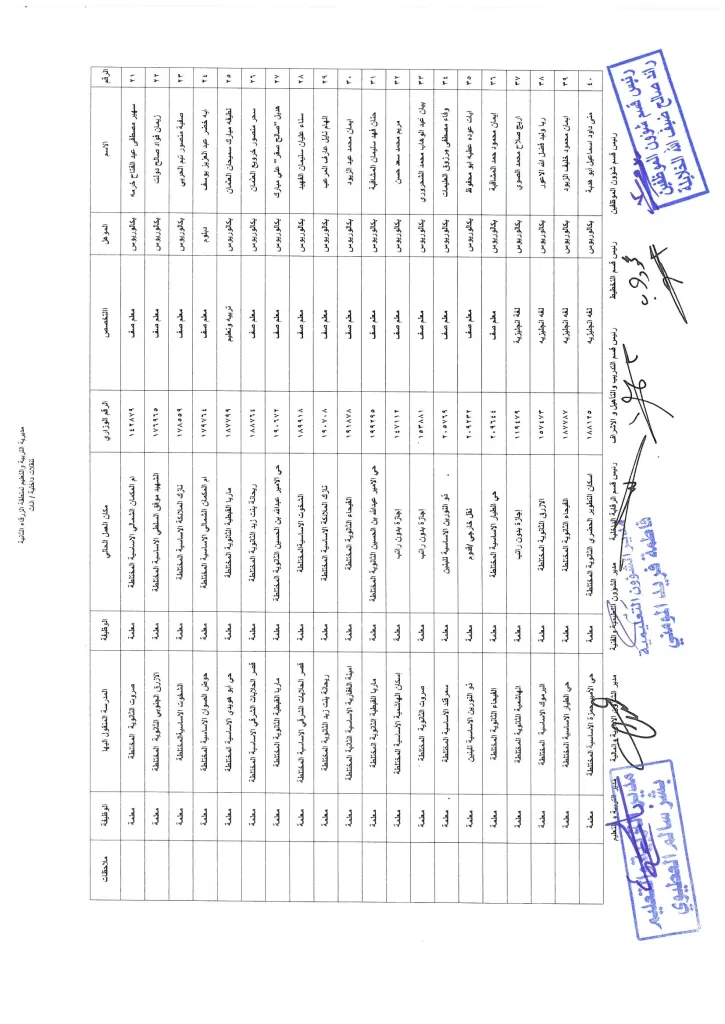 مديرية التربية والتعليم لمنطقة الزرقاء الثانية
تنقلات داخلية / اناث
الرقم الاسم المؤهل التخصص الرقم الوزاري مكان العمل الحالي الوظيفة المدرسة المنقول اليها الوظيفة ملاحظات
٢١ سهير مصطفى عبد الفتاح خرمه بكالوريوس معلم صف ١٤٢٨٧٩ ام المكمان الشمالي الاساسية المختلطة معلمة صروت الثانوية المختلطة معلمة
٢٢ زيمان فواد صالح دولت بكالوريوس معلم صف ١٧٦٩٦٥ الشهيد موفق السلطي الاساسية المختلطة معلمة الازرق الجنوبي الثانوية المختلطة معلمة
٢٣ صفية منصور تيم الحربي بكالوريوس معلم صف ١٧٨٥٥٩ نازك الملائكة الاساسية المختلطة معلمة الشخوت الاساسية المختلطة معلمة
٢٤ ايه خضر عبد العزيز يوسف دبلوم معلم صف ١٧٩٧٦٤ ام المكمان الشمالي الاساسية المختلطة معلمة حوض الصوان الاساسية المختلطة معلمة
٢٥ لطيفه مبارك سميحان العثمان بكالوريوس تربيه وتعليم ١٨٧٧٩٩ ماريا القبطية الثانوية المختلطة معلمة حي ابو هويدي الاساسية المختلطة معلمة
٢٦ سحر منصور خرويع العثمان بكالوريوس معلم صف ١٨٨٧٦٤ ريحانة بنت زيد الثانوية المختلطة معلمة قصر الحلابات الشرقي الاساسية المختلطة معلمة
٢٧ هديل "صالح صقر" علي مبارك بكالوريوس معلم صف ١٩٠٦٧٢ حي الامير عبدالله بن الحسين الثانوية المختلطة معلمة ماريا القبطية الثانوية المختلطة معلمة
٢٨ سناء عليان سليمان الفهيد بكالوريوس معلم صف ١٨٩٩١٨ الشخوت الاساسية المختلطة معلمة قصر الحلابات الشرقي الاساسية المختلطة معلمة
٢٩ الهام نايل عارف المرعب بكالوريوس معلم صف ١٩٠٧٠٨ نازك الملائكة الاساسية المختلطة معلمة ريحانة بنت زيد الثانوية المختلطة معلمة
٣٠ ايمان محمد عبد الزيود بكالوريوس معلم صف ١٩١٨٧٨ الفيحاء الثانوية المختلطة معلمة امينة الغفارية الاساسية الثانية المختلطة معلمة
٣١ حنان فهد سليمان المشاقبة بكالوريوس معلم صف ١٩٩٢٩٥ حي الامير عبدالله بن الحسين الثانوية المختلطة معلمة ماريا القبطية الثانوية المختلطة معلمة
٣٢ مريم محمد سعد حسن بكالوريوس معلم صف ١٤٧١١٢ اجازة بدون راتب معلمة اسكان الهاشمية الاساسية المختلطة معلمة
٣٣ بيان عبد الوهاب محمد الشحروري بكالوريوس معلم صف ١٥٣٨٨١ اجازة بدون راتب معلمة صروت الثانوية المختلطة معلمة
٣٤ وفاء مصطفى مرزوق العليمات بكالوريوس معلم صف ٢٠٥٧٦٩ ذو النورين الاساسية للبنين معلمة سمرقند الاساسية المختلطة معلمة
٣٥ ايات عوده عطيه ابو محفوظ بكالوريوس معلم صف ٢٠٩٢٣٢ نقل خارجي /قوم معلمة ذو النورين الاساسية للبنين معلمة
٣٦ ايمان محمود حمد المشاقبة بكالوريوس معلم صف ٢٠٩٦٤٤ حي الطيار الاساسية المختلطة معلمة الفيحاء الثانوية المختلطة معلمة
٣٧ اريج صلاح محمد الصوري بكالوريوس لغة انجليزية ١١٩٤٧٩ اجازة بدون راتب معلمة الهاشمية الثانوية المختلطة معلمة
٣٨ ربا وليد فضل الله الاعور بكالوريوس لغه انجليزيه ١٥٧٤٧٣ الازرق الثانوية المختلطة معلمة اليرموك الاساسية المختلطة معلمة
٣٩ ايمان محمود خليف الزيود بكالوريوس لغه انجليزيه ١٨٧٧٨٧ الفيحاء الثانوية المختلطة معلمة حي الطيار الاساسية المختلطة معلمة
٤٠ منى داود اسماعيل ابو هدبة بكالوريوس لغه انجليزيه ١٨٨١٢٥ اسكان التطوير الحضري الثانوية المختلطة معلمة حي الامير حمزة الاساسية المختلطة معلمة
رئيس قسم شؤون الموظفين رئيس قسم التخطيط رئيس قسم التدريب والتاهيل و الاشراف رئيس قسم الرقابة الداخلية مدير الشؤون التعليمية و الفنية مدير الشؤون الادارية و المالية مدير التربية و التعليم
رئيس قسم شؤون الموظفين
رائد صالح ضيف الله الخلايلة
مدير الشؤون التعليمية
فاطمة فريد المومني
مدير التربية والتعليم
بشر سالم العطيوي